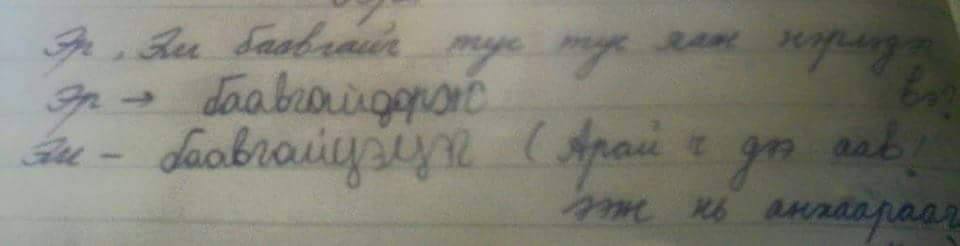 Эр, Эм баавгайг тус тус яаж нэрлэдэг вэ?
Эр → баавгайдорж
Эм - баавгайцэцэг (Арай ч дээ аав!
ээж нь анхаараач